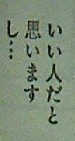 いい人だと
思います
し…